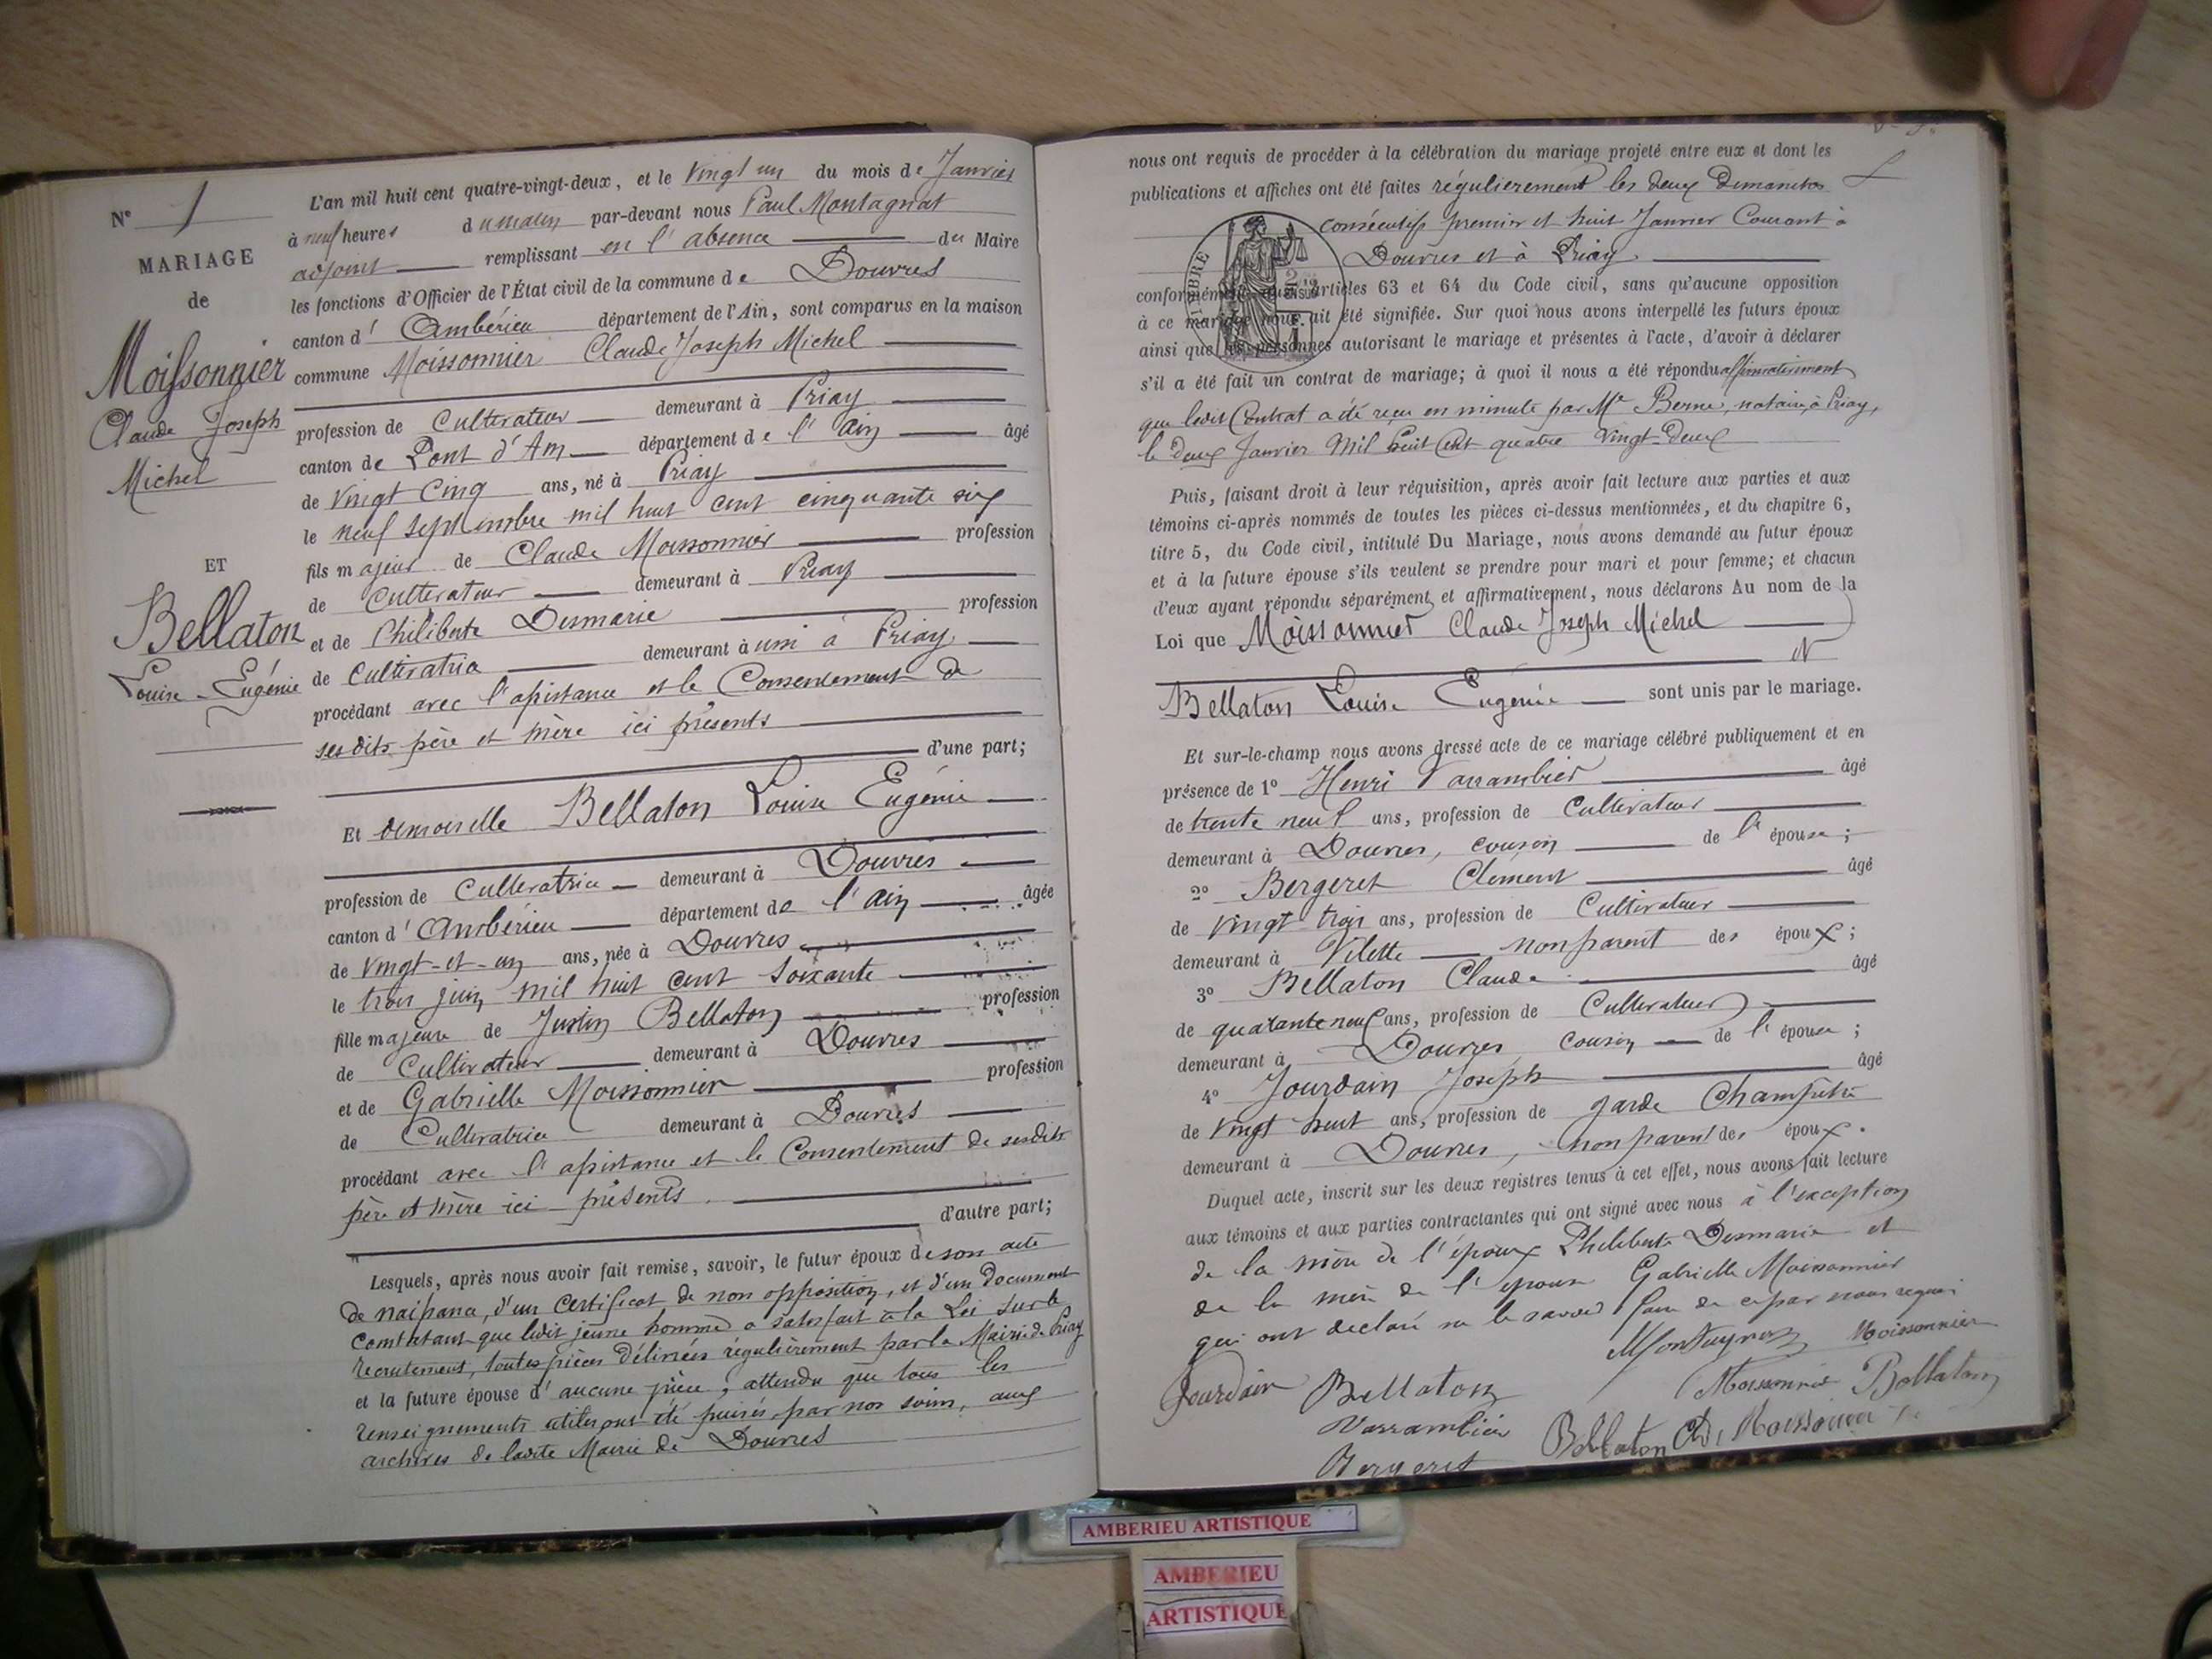 N° 1
MARIAGE
de
Moissonnier
Claude Joseph
Michel
ET
Bellaton
Louise-Eugénie
L'an mil huit cent quatre-vingt-deux, et le Vingt un du mois de Janvier
à neuf heures du matin par-devant nous Paul Montagnat
adjoint remplissant en l'absence du Maire
les fonctions d'Officier de l'État civil de la commune de Douvres
canton d'Ambérieu département de l'Ain, sont comparus en la maison
commune Moissonnier Claude Joseph Michel
profession de Cultivateur demeurant à Priay
canton de Pont d'Ain département de l'Ain âgé
de Vingt Cinq ans, né à Priay
le neuf septembre mil huit cent cinquante six
fils majeur de Claude Moissonnier profession
de Cultivateur demeurant à Priay
et de Philiberte Desmarie profession
de Cultivatrice demeurant à uni à Priay
procédant avec l'assistance et le Consentement de
ses dits père et mère ici présents
d'une part;
Et demoiselle Bellaton Louise Eugénie
profession de Cultivatrice demeurant à Douvres
canton d'Ambérieu département de l'Ain âgée
de Vingt-et-un ans, née à Douvres
le trois juin mil huit cent soixante
fille majeure de Justin Bellaton profession
de Cultivateur demeurant à Douvres
et de Gabrielle Moissonnier profession
de Cultivatrice demeurant à Douvres
procédant avec l'assistance et le Consentement de sesdits
père et mère ici présents.
d'autre part;
Lesquels, après nous avoir fait remise, savoir, le futur époux de son acte
de naissance, d'un Certificat de non opposition, et d'un document
constatant que ledit jeune homme a satisfait à la Loi sur le
recrutement, toutes pièces délivrées régulièrement par la Mairie de Priay
et la future épouse d'aucune pièce, attendu que tous les
renseignements utiles ont été puisés par nos soins, aux
archives de ladite Mairie de Douvres
nous ont requis de procéder à la célébration du mariage projeté entre eux et dont les
publications et affiches ont été faites régulièrement les deux Dimanches
consécutifs premier et huit Janvier Courant à
Douvres et à Priay.
TIMBRE
conformément aux articles 63 et 64 du Code civil, sans qu'aucune opposition
à ce mariage nous ait été signifiée. Sur quoi nous avons interpellé les futurs époux
ainsi que les personnes autorisant le mariage et présentes à l'acte, d'avoir à déclarer
s'il a été fait un contrat de mariage; à quoi il nous a été répondu affirmativement
que ledit Contrat a été reçu en minute par Me Berne, notaire, à Priay,
le deux Janvier Mil huit Cent quatre Vingt-Deux
Puis, faisant droit à leur réquisition, après avoir fait lecture aux parties et aux
témoins ci-après nommés de toutes les pièces ci-dessus mentionnées, et du chapitre 6,
titre 5, du Code civil, intitulé Du Mariage, nous avons demandé au futur époux
et à la future épouse s'ils veulent se prendre pour mari et pour femme; et chacun
d'eux ayant répondu séparément et affirmativement, nous déclarons Au nom de la
Loi que Moissonnier Claude Joseph Michel
et
Bellaton Louise Eugénie sont unis par le mariage.
Et sur-le-champ nous avons dressé acte de ce mariage célébré publiquement et en
présence de 1° Henri Varrambier âgé
de trente neuf ans, profession de Cultivateur
demeurant à Douvres, cousin de l'épouse;
2° Bergeret Clement âgé
de Vingt trois ans, profession de Cultivateur
demeurant à Vilette non parent des époux;
3° Bellaton Claude âgé
de quarante neuf ans, profession de Cultivateur
demeurant à Douvres cousin de l'épouse;
4° Jourdain Joseph âgé
de Vingt huit ans, profession de garde Champêtre
demeurant à Douvres, non parent des époux.
Duquel acte, inscrit sur les deux registres tenus à cet effet, nous avons fait lecture
aux témoins et aux parties contractantes qui ont signé avec nous à l'exception
de la mère de l'époux Philiberte Desmarie et
de la mère de l'épouse Gabrielle Moissonnier
qui ont déclaré ne le savoir faire de ce par nous requis
Montagnat Moissonnier
Jourdain Bellaton Moissonnier Bellaton
Varrambier Bellaton Cl. Moissonnier
Bergeret
AMBERIEU ARTISTIQUE
AMBERIEU
ARTISTIQUE